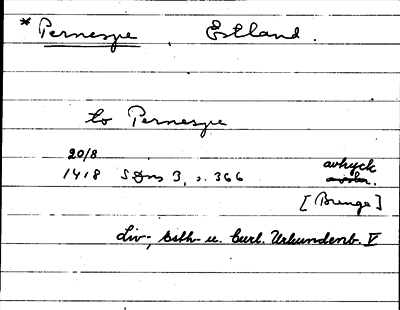 * Pernespe, Estland.
to Pernespe
20/8
1418 SDns 3, s. 366 avtryck
[Brunge]
Liv-, Esth- u. Curl. Urkundenb. V